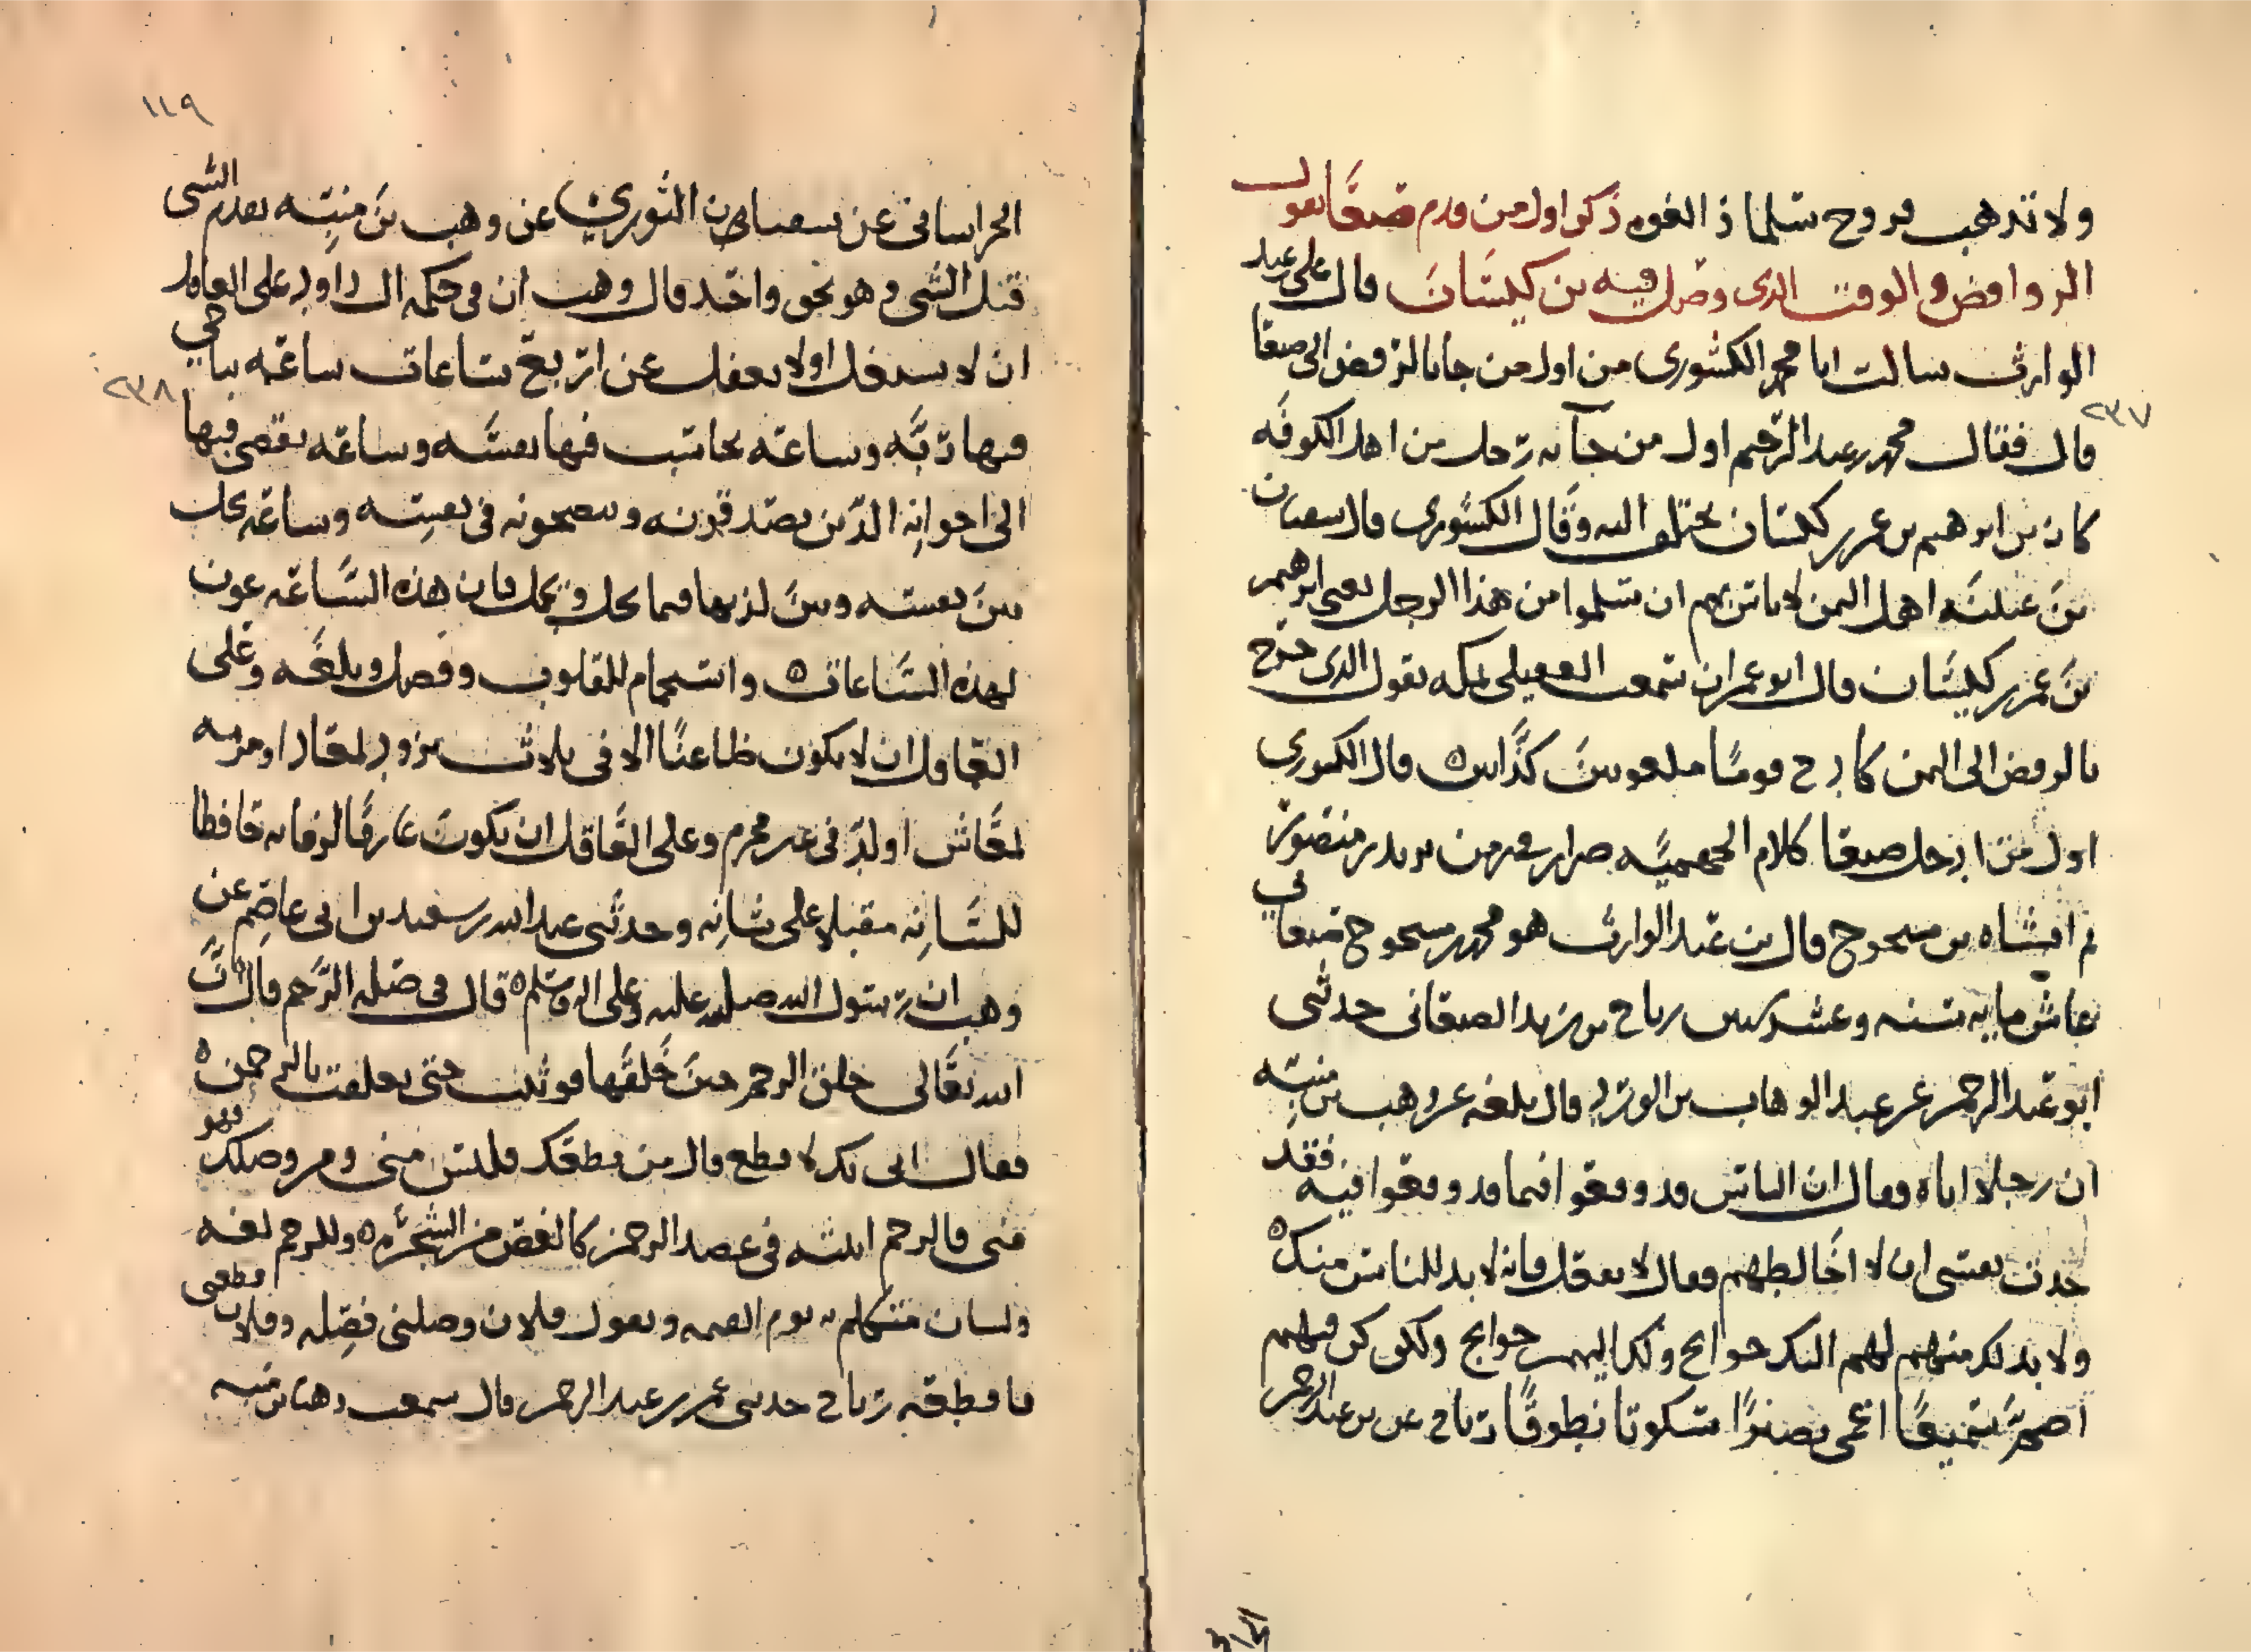 ولا تذهب بروح سلما ذ القوه ذكر اول من قدم صنعا بقول
الروافض والوقت الذى وصل فيه بن كيسان قال على بن عبد
الوارث سالت ابا محمد الكشورى من اول من جا بالرفض الى صنعا
٢٣٧
قال فقال محمد بن عبد الرحيم اول من جآ به رجل من اهل الكوفه
كان بن ابرهيم بن عمر بن كيسان يختلف اليه وقال الكشورى قال سفيان
بن عيينه اهل اليمن لا باس بهم ان سلموا من هذا الرجل يعنى ابرهيم
بن عمر بن كيسان قال ابو عمران سمعت العقيلى بمكه يقول الذى خرج
بالرفض الى اليمن كا دح قوما ملعونين كذابين ٥ قال الكشورى
اول من ادخل صنعا كلام الجهميه من يزيد بن منصور
ثم افشاه بن مسحوح قال بن عبد الوارث هو محمد بن مسحوح صنعانى
عاش مايه سنه وعشر سنين رباح بن زيد الصنعانى حدثنى
ابو عبد الرحمن عن عبد الوهاب بن الورد قال بلغه عن وهب بن منبه
ان رجلا اتاه فقال ان الناس قد وقعوا فيما قد وقعوا فيه فقد
حدثت نفسى ان لا اخالطهم فقال لا تفعل فانه لا بد للناس منك ٥
ولا بد لك منهم لهم اليك حوايج ولك اليهم حوايج ولكن كن فيهم
اصم سميعا اعمى بصيرا سكوتا نطوقا رباح عن بن عبد الرحمن
الخرا
١١٩
الخراسانى عن سفيان الثورى عن وهب بن منبه تقدم الشى
قبل الشى وهو نحو واحد قال وهب ان فى حكمه ال داود على العاقل
ان لا يشغل اولا يغفل عن اربع ساعات ساعه يناجى
٢٣٨
فيها ربه وساعه يحاسب فيها نفسه وساعه يفضى فيها
الى اخوانه الذين يصدقونه وينصحونه فى نفسه وساعه يخلى
بين نفسه وبين لذتها فيما يحل ويجمل فان هذه الساعه عون
لهذه الساعات ٥ واستجمام للقلوب وفضل وبلغه وعلى
العاقل ان لا يكون ظاعنا الا فى ثلاث تزود لمعاد او مرمه
لمعاش او لذه فى غير محرم وعلى العاقل ان يكون عارفا لزمانه حافظا
للسانه مقبلا على شانه وحدثنى عبد الله بن سعيد بن ابى عاصم عن
وهب ان رسول الله صلى الله عليه وعلى اله وسلم ٥ قال فى صله الرحم قال ان
الله تعالى خلق الرحم حين خلقها فوثبت حتى تعلقت بالرحمن ٥
فقالت انى بك لا قطع قال من قطعك فليس منى ومن وصلك فهو
منى فالرحم ابنته فى عضد الرحمن كالغصن من الشجره ٥ وللرحم لغه
ولسان متكلم به يوم القيمه ويقول فلان وصلنى فصله وفلان قطعنى
فاقطعه رباح حدثنى عمر بن عبد الرحمن قال سمعت وهب بن منبه